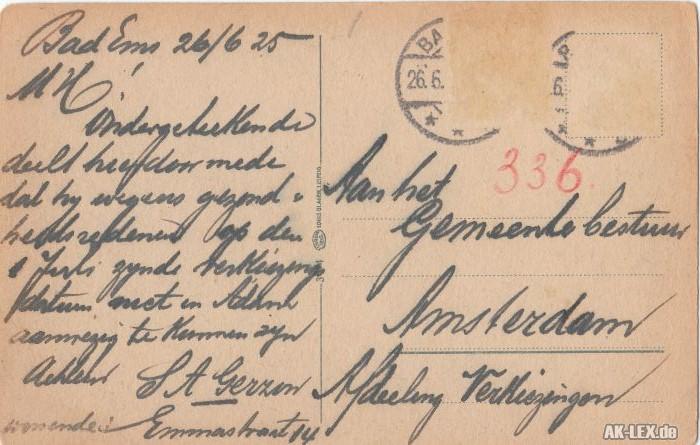 Bad Ems 26/6 25
M H!
Ondergeteekende
deelt hierdoor mede
dat hy wegens gezond-
heidsredenen op den
1 Juli zynde verkiezings
datum niet in Adam
aanwezig te kunnen zyn
Achtend S A Gerzon
wonende: Emmastraat 14
BA
26.6.
6
LOUIS GLASER, LEIPZIG
336.
Aan het
Gemeentebestuur
Amsterdam
Afdeeling Verkiezingen
AK-LEX.de